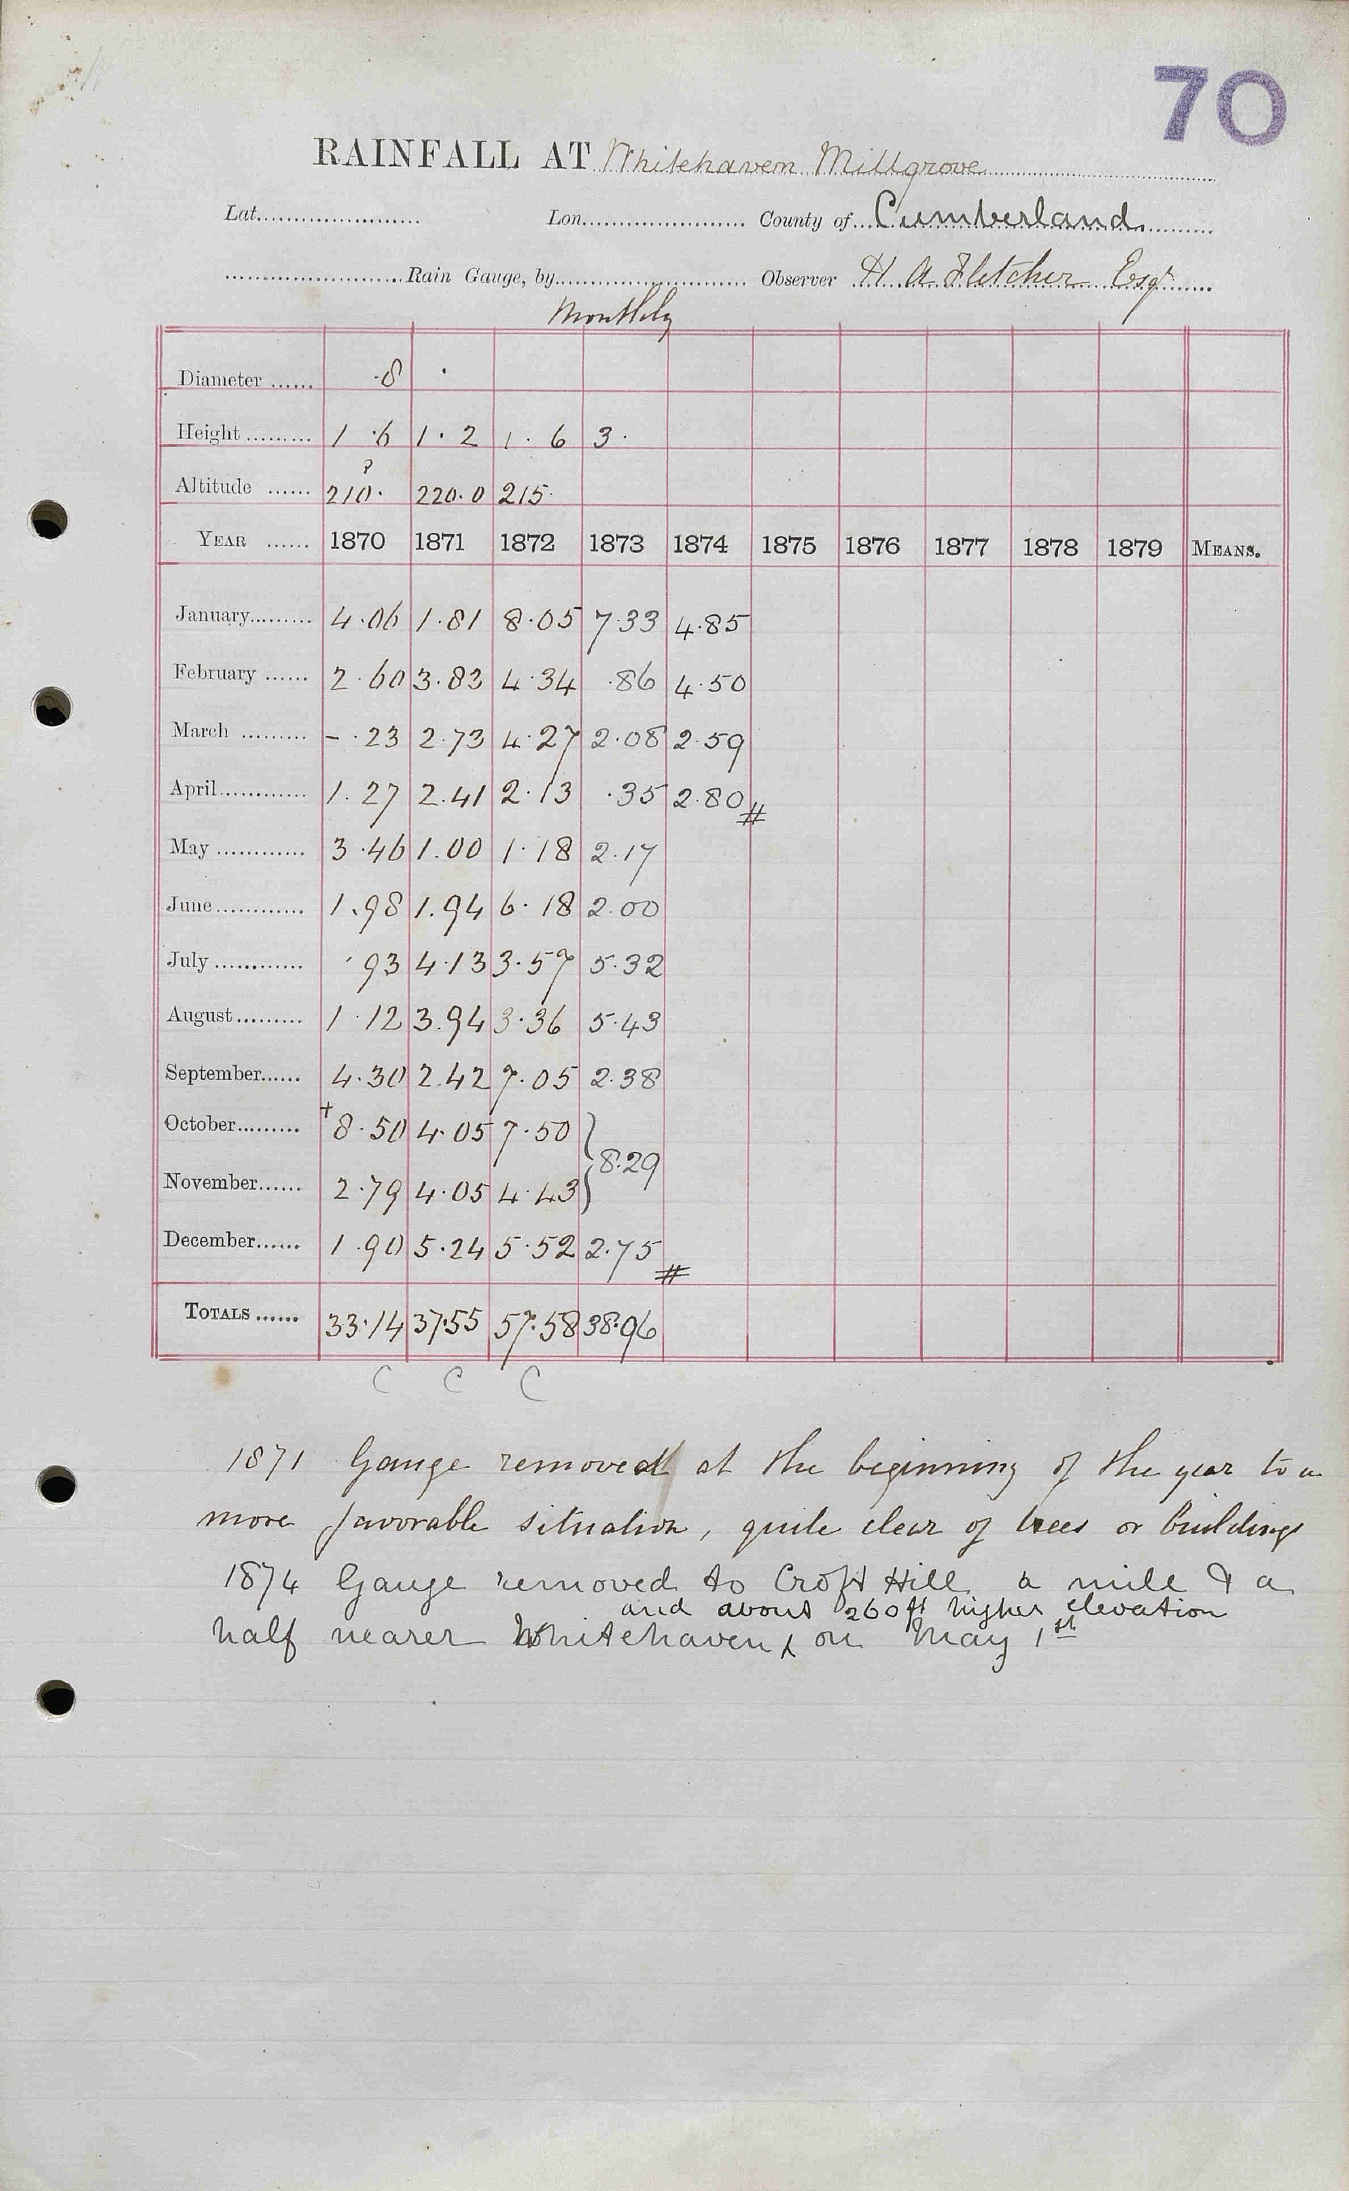 70
RAINFALL AT Whitehaven Millgrove
Lat. Lon. County of Cumberland.
Rain Gauge, by Observer H A Fletcher Esqr
Monthly
Diameter ...... ·8 ·
Height ......... 1 ·6 1·2 1·6 3·
?
Altitude ...... 210· 220·0 215·
YEAR ...... 1870 1871 1872 1873 1874 1875 1876 1877 1878 1879 MEANS.
January......... 4·06 1·81 8·05 7·33 4·85
February ...... 2·60 3·83 4·34 ·86 4·50
March ......... - ·23 2·73 4·27 2·08 2·59
April............ 1·27 2·41 2·13 ·35 2·80 #
May ............ 3·46 1·00 1·18 2·17
June............ 1·98 1·94 6·18 2·00
July ............ ·93 4·13 3·57 5·32
August......... 1·12 3·94 3·36 5·43
September...... 4·30 2·42 7·05 2·38
October......... +8·50 4·05 7·50 } 8·29
November...... 2·79 4·05 4·43
December...... 1·90 5·24 5·52 2·75 #
TOTALS ...... 33·14 37·55 57·58 38·96
C C C
1871 Gauge removed at the beginning of the year to a
more favorable situation, quite clear of trees or buildings
1874 Gauge removed to Croft Hill a mile & a
and about 260 ft higher elevation
half nearer Whitehaven ⁁ on May 1st